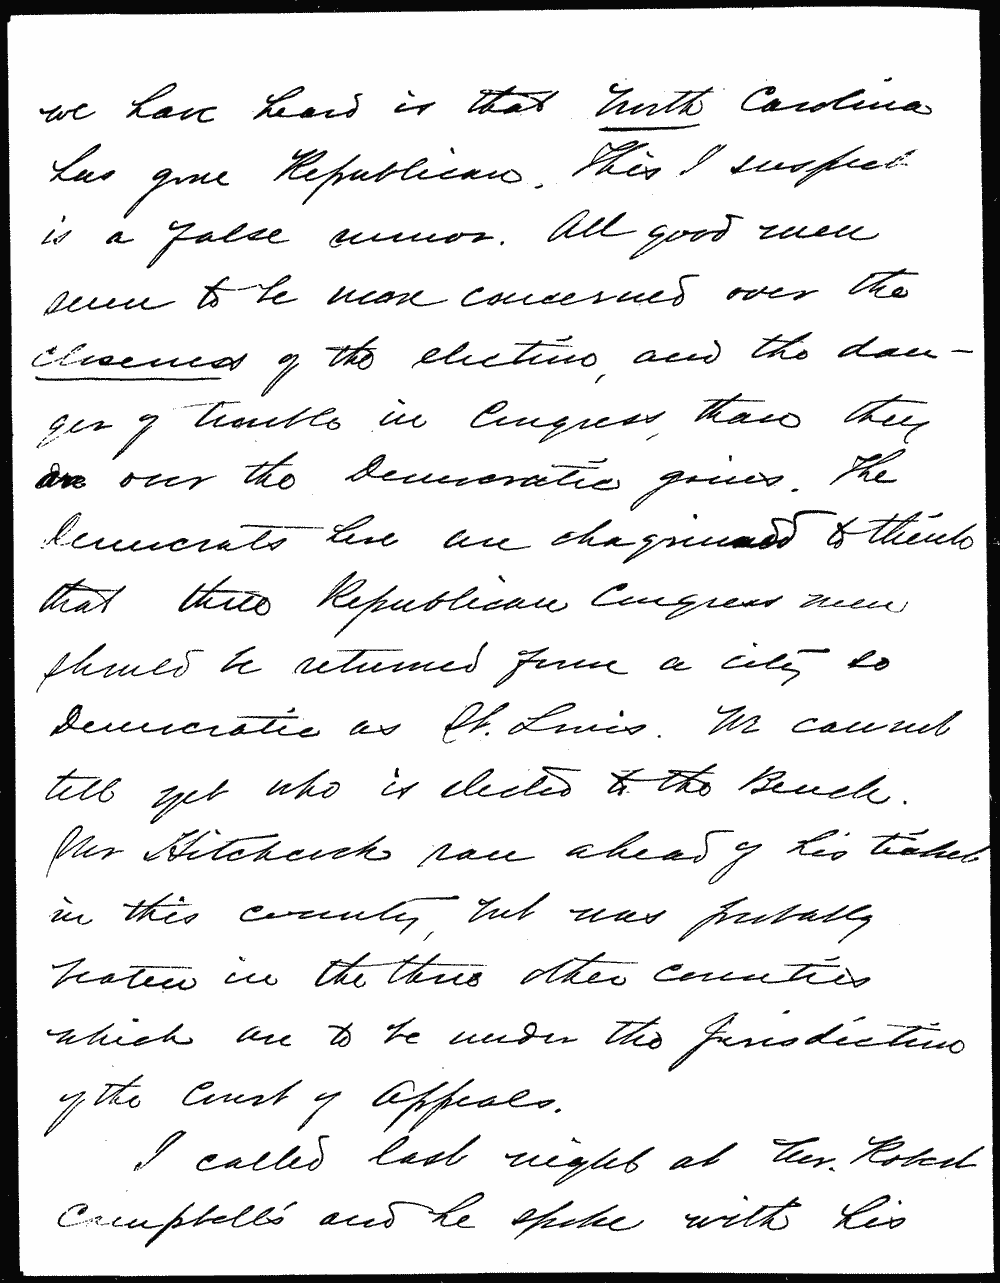 we have heard is that North Carolina
has gone Republican. This I suspect
is a false rumor. All good men
seem to be more concerned over the
closeness of the election, and the dan-
ger of trouble in Congress, than they
are over the Democratic gains. The
Democrats here are chagrinned to think
that three Republican Congress men
should be returned from a city so
Democratic as St. Louis. We cannot
tell yet who is elected to the Bench.
Mr Hitchcock ran ahead of his ticket
in this county, but was probably
beaten in the three other counties
which are to be under the jurisdiction
of the Court of Appeals.
I called last night at Mr. Robert
Campbell's and he spoke with his